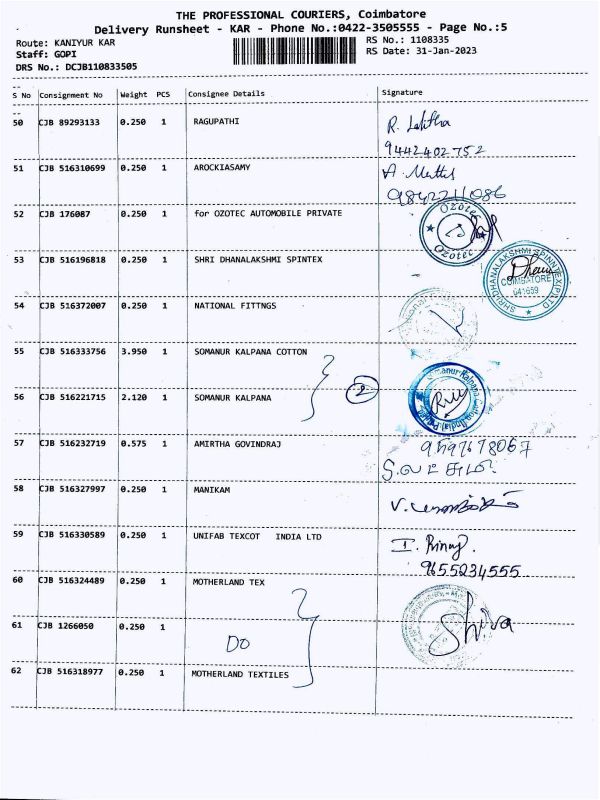 THE PROFESSIONAL COURIERS, Coimbatore
Delivery Runsheet - KAR - Phone No.:0422-3505555 - Page No.:5
Route: KANIYUR KAR
RS No.: 1108335
Staff: GOPI
RS Date: 31-Jan-2023
DRS No.: DCJB110833505
S No Consignment No Weight PCS Consignee Details Signature
50 CJB 89293133 0.250 1 RAGUPATHI R. Lalitha
9442402752
51 CJB 516310699 0.250 1 AROCKIASAMY A. Muthu
9842211086
52 CJB 176087 0.250 1 for OZOTEC AUTOMOBILE PRIVATE Ozotec
Ozotec
53 CJB 516196818 0.250 1 SHRI DHANALAKSHMI SPINTEX SHRI DHANALAKSHMI SPINNTEX (P) LTD
COIMBATORE
641659
54 CJB 516372007 0.250 1 NATIONAL FITTNGS
55 CJB 516333756 3.950 1 SOMANUR KALPANA COTTON
2
56 CJB 516221715 2.120 1 SOMANUR KALPANA Somanur Kalpana Cotton
57 CJB 516232719 0.575 1 AMIRTHA GOVINDRAJ 9597678067
58 CJB 516327997 0.250 1 MANIKAM
59 CJB 516330589 0.250 1 UNIFAB TEXCOT INDIA LTD I.
9655234555
60 CJB 516324489 0.250 1 MOTHERLAND TEX
61 CJB 1266050 0.250 1 DO Shiva
62 CJB 516318977 0.250 1 MOTHERLAND TEXTILES